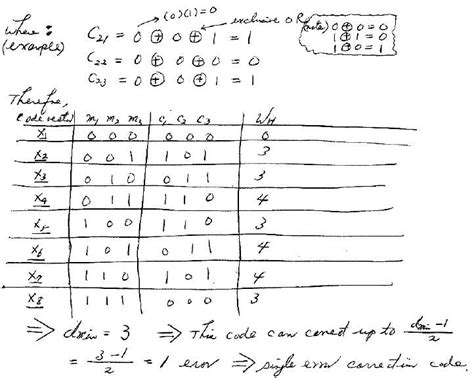 where : (0)(1)=0
(example) C21 = 0 ⊕ 0 ⊕ 1 = 1 exclusive OR
C22 = 0 ⊕ 0 ⊕ 0 = 0
C23 = 0 ⊕ 0 ⊕ 1 = 1
(note) 0 ⊕ 0 = 0
1 ⊕ 1 = 0
1 ⊕ 0 = 1
Therefore,
Code vector m1 m2 m3 C1 C2 C3 WH
X1 0 0 0 0 0 0 0
X2 0 0 1 1 0 1 3
X3 0 1 0 0 1 1 3
X4 0 1 1 1 1 0 4
X5 1 0 0 1 1 0 3
X6 1 0 1 0 1 1 4
X7 1 1 0 1 0 1 4
X8 1 1 1 0 0 0 3
⇒ dmin = 3 ⇒ This code can correct up to dmin-1/2
= 3-1/2 = 1 error ⇒ single error correction code.